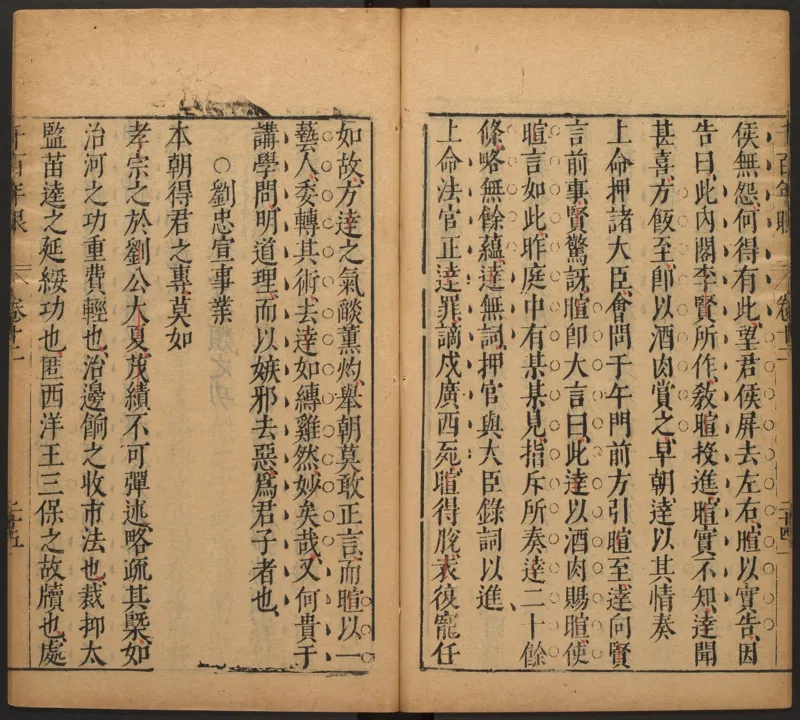 侯無怨何得有此望君侯屏去左右暄以實告因
告曰此内閣李賢所作敎暄投進暄實不知達聞
甚喜方飯至卽以酒肉賞之早朝達以其情奏
上命押諸大臣會問于午門前方引暄至達向賢
言前事賢驚訝暄卽大言曰此達以酒肉賜暄使
暄言如此昨庭中有某某見指斥所奏達二十餘
條略無餘蘊達無詞押官與大臣錄詞以進
上命法官正達罪謫戍廣西死暄得脫袁復寵任
如故方達之氣燄薰灼舉朝莫敢正言而暄以一
藝人委轉其術去達如縛雞然妙矣哉又何貴于
講學問明道理而以嫉邪去惡爲君子者也
○劉忠宣事業
本朝得君之專莫如
孝宗之於劉公大夏茂績不可彈述略疏其槩如
治河之功重費輕也治邊餉之收市法也裁抑太
監苗逵之延綏功也匿西洋王三保之故牘也處
卷十二
二十五